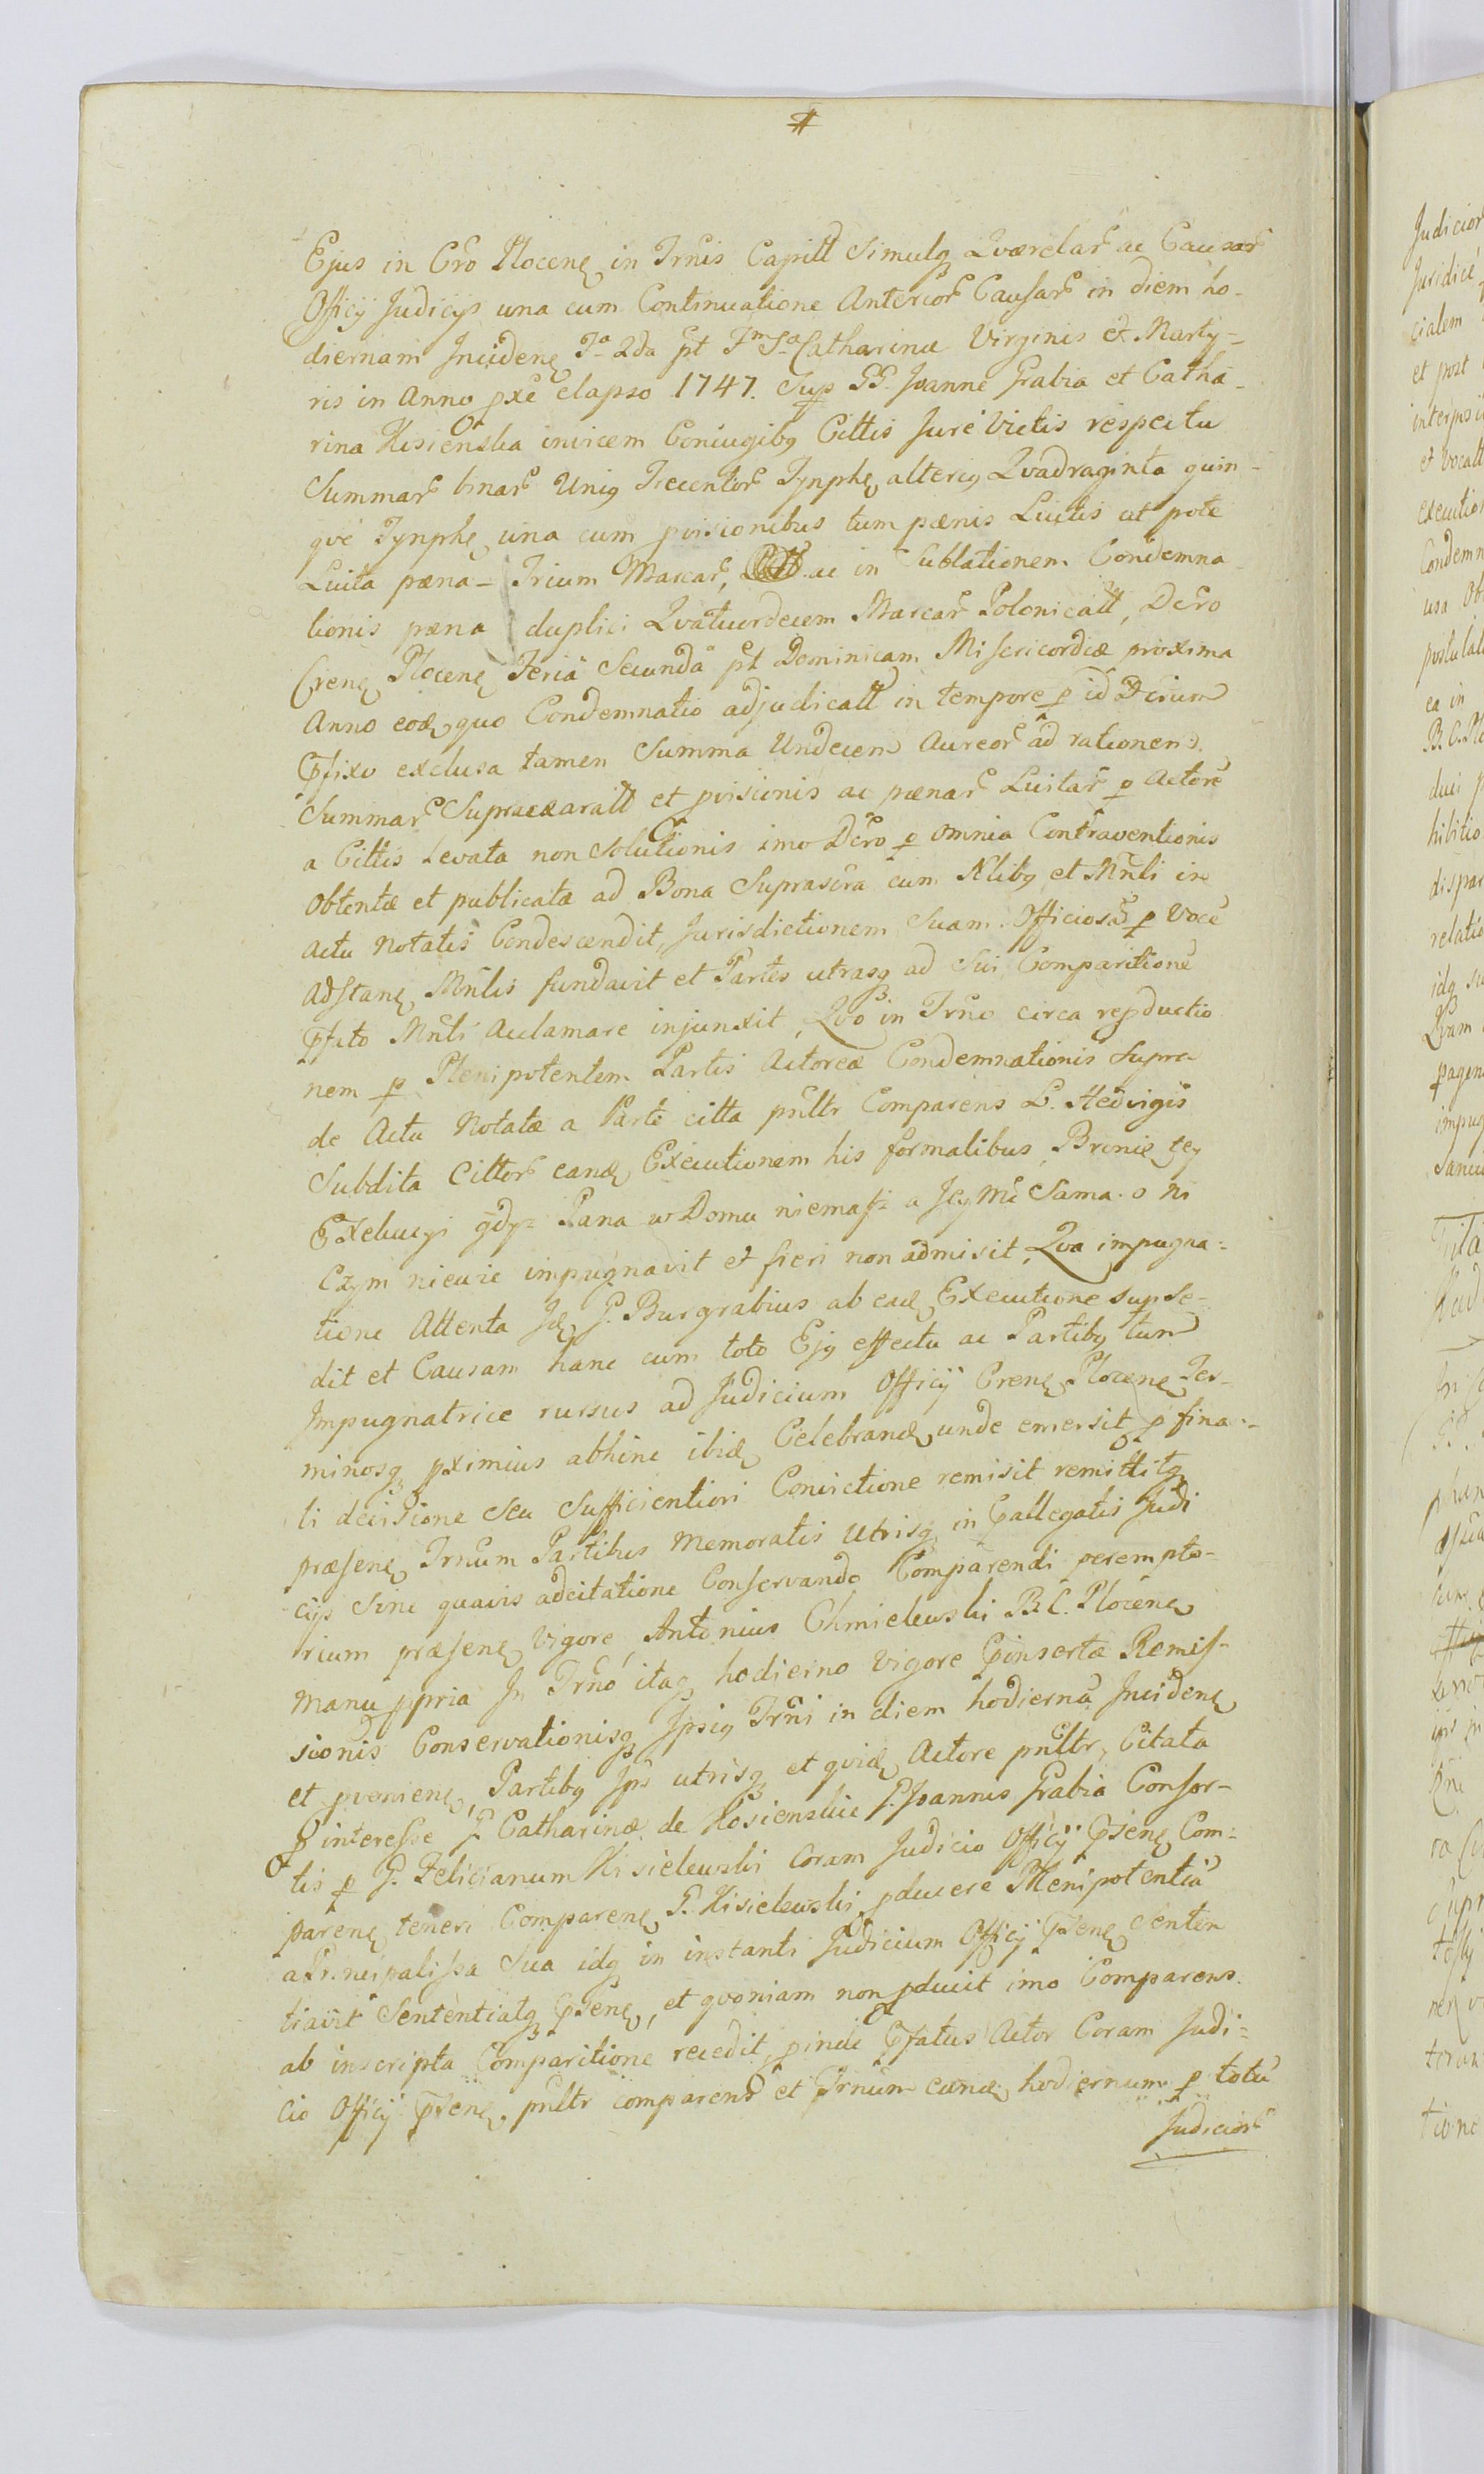 #
Ejus in Cro Plocen in Trnis Capitl Simulq Qværelar ac Causar
Officÿ Judicÿs una cum Continuatione Anterior Causar in diem ho-
diernam Inciden Fa 2da pt Fm Sa Catharinæ Virginis et Marty-
ris in Anno pxe elapso 1747. Sup GG. Joanne Grabia et Catha-
rina Kisienska invicem Coniugibq Cittis Jure Victis respectu
Summar binar Uniq Trecentor Tynph alteriq Qvadraginta quin-
qve Tynph una cum pvisionibus tum pænis Luitis ut pote
Luita pæna - Trium Marcar, ac in Sublationem Condemna-
tionis pæna duplici Qvatuordecem Marcar Polonicall, Dcro
Cren Plocen Feria Secunda pt Dominicam Misericordiæ proxima
Anno eod quo Condemnatio adjudicatt in tempore p id Dcrum
pfixo exclusa tamen Summa Undecem Aureor ad rationem
Summar Supraexaratt et pvisionis ac pænar Luitar p Actore
a Cittis Levata non Solutionis imo Dcro p omnia Contraventionis
Obtentæ et publicata ad Bona Suprascra cum Nlibq et Mnli in
Actu Notatis Condescendit, Jurisdictionem Suam Officiosa p Voce
Adstan Mnlis fundavit et Partes utrasq ad Sui Comparitione
pfato Mnli Aclamare injunxit, Qvo in Trno circa repductio
nem p Plenipotentem Partis Actoreæ Condemnationis Supra
de Actu Notatæ a Parte citta pnltr Comparens L. Hedvigis
Subdita Cittor eand Executionem his formalibus Bronię tey
Exekucyi gdyz Pana w Domu niemasz a Jey Mc Sama o ni
Czym niewie impugnavit et fieri non admisit, Qva impugna-
tione Attenta Id G. Burgrabius ab ead Executione supse-
dit et Causam hanc cum toto Ejq effectu ac Partibq tum
Impugnatrice rursus ad Judicium Officÿ Cren Plocen Ter-
minosq pximius abhinc ibid Celebrand unde emersit p fina-
li decisione seu Sufficientiori Convictione remisit remittitq
præsen Trnum Partibus memoratis Utrisq in pallegatis Judi
cÿs Sine quavis adcitatione Conservando Comparendi perempto-
rium præsen Vigore, Antonius Chmielewski B.C. Plocen
manu ppria In Trno itaq hodierno Vigore pinsertæ Remis-
sionis Conservationisq Ipsiq Trni in diem hodierna Inciden
et pvenien, Partibq Ips utrisq et qvid Actore pnltr, Citata
p interesse G. Catharinæ de Kosienskie G. Joannis Grabia Consor-
tis p G. Felicianum Kisielewski Coram Judicio Officÿ psen Com-
paren teneri Comparen G. Kisielewski pducere Plenipotentia
a Principalissa Sua idq in instanti Judicium Officÿ psen Senten
tiavit Sententiatq psen, et qvoniam non pducit imo Comparens
ab inscripta Comparitione recedit, pinde pfatus Actor Coram Judi-
cio Officÿ psen pnltr comparens et Trnum eund hodiernum p totu
Judicior